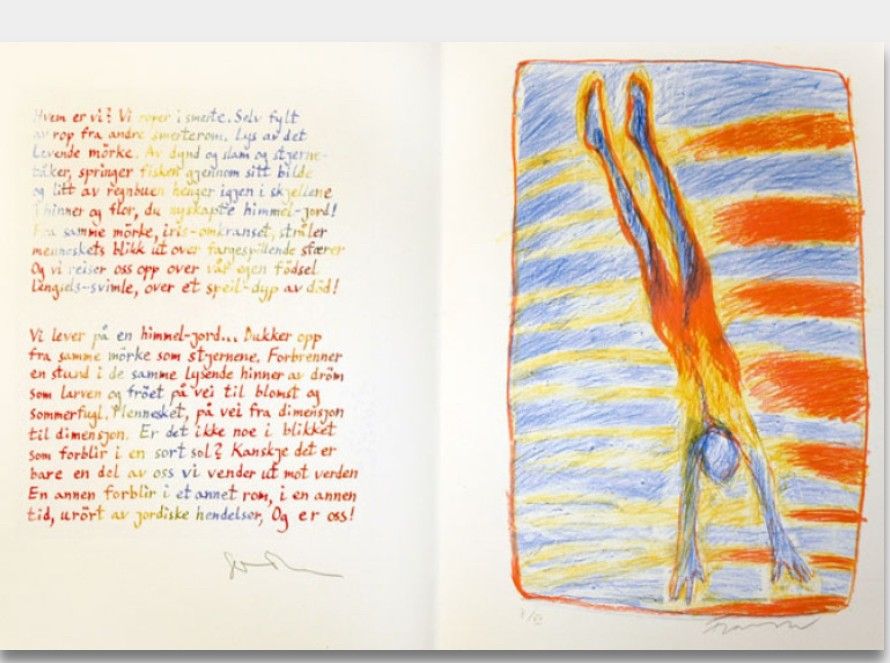 Hvem er vi? Vi rorer i smerte. Selv fylt
av rop fra andre smerterom. Lys av det
Levende mörke. Av dynd og slam og stjerne-
tåker, springer fisken gjennom sitt bilde
og litt av regnbuen henger igjen i skjellene
i hinner og flor, du nyskapte himmel-jord!
Fra samme mörke, iris-omkranset, stråler
menneskets blikk ut over fargespillende sfærer
Og vi reiser oss opp over vår egen födsel
Lengsels-svimle, over et speil-dyp av död!
Vi lever på en himmel-jord... Dukker opp
fra samme mörke som stjernene. Forbrenner
en stund i de samme lysende hinner av dröm
som larven og fröet på vei til blomst og
sommerfugl. Mennesket, på vei fra dimensjon
til dimensjon. Er det ikke noe i blikket
som forblir i en sort sol? Kanskje det er
bare en del av oss vi vender ut mot verden
En annen forblir i et annet rom, i en annen
tid, urört av jordiske hendelser, Og er oss!